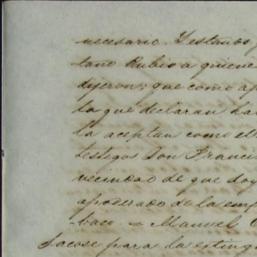 necesario. Y estando
tano Rubio a quienes
dijeron: que como ap
la que declaran ha
la aceptan como el
testigos Don Franci
vecindad de que doy
apoderado de la comp
baco = Manuel
Sacose para la estingu